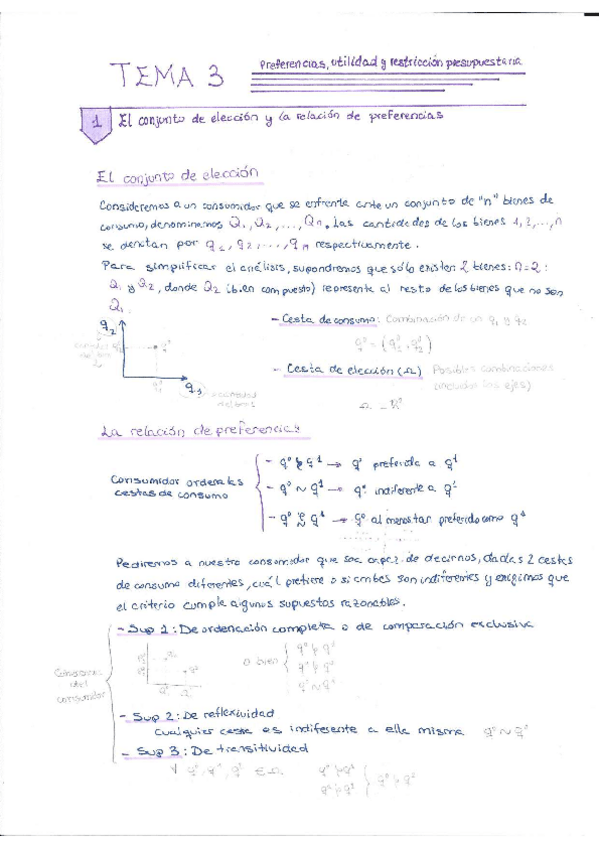 TEMA 3
Preferencias, utilidad y restricción presupuestaria
1 El conjunto de elección y la relación de preferencias
El conjunto de elección
Consideremos a un consumidor que se enfrenta ante un conjunto de "n" bienes de
consumo, denominamos Q₁, Q₂, ..., Qn. Las cantidades de los bienes 1, 2, ..., n
se denotan por q₁, q₂, ..., qn respectivamente.
Para simplificar el análisis, supondremos que sólo existen 2 bienes: n=2:
Q₁ y Q₂, donde Q₂ (bien compuesto) representa al resto de los bienes que no son
Q₁.
q₂
q₁
- Cesta de consumo: Combinación de un q₁ y q₂
q⁰ = (q₁⁰, q₂⁰)
- Cesta de elección (Ω) Posibles combinaciones
(incluidos los ejes)
La relación de preferencias
Consumidor ordena las
cestas de consumo
- q⁰ ≻ q¹ → q⁰ preferida a q¹
- q⁰ ~ q¹ → q⁰ indiferente a q¹
- q⁰ ≿ q¹ → q⁰ al menos tan preferido como q¹
Pediremos a nuestro consumidor que sea capaz de decirnos, dadas 2 cestas
de consumo diferentes, cuál prefiere o si ambas son indiferentes y exigimos que
el criterio cumpla algunos supuestos razonables.
- Sup 1: De ordenación completa o de comparación exclusiva
o bien
q⁰ ~ q¹
consumidor
- Sup 2: De reflexividad
Cualquier cesta es indiferente a ella misma q⁰ ~ q⁰
- Sup 3: De transitividad